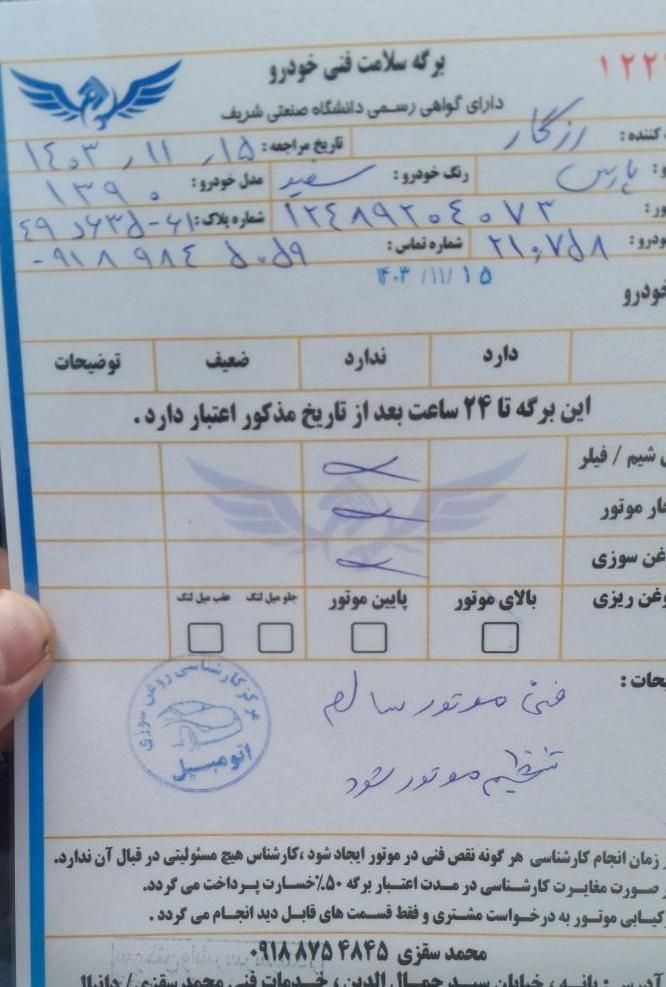 برگه سلامت فنی خودرو
۱۲۲
دارای گواهی رسمی دانشگاه صنعتی شریف
کننده : رزگار
تاریخ مراجعه : ۱۴۰۳/۱۱/۱۵
پارس
رنگ خودرو : سفید
مدل خودرو : ۱۳۹۰
۱۲۴۸۹۲۰۴۰۷۳
شماره پلاک :
شماره تماس : ۰۹۱۸ ۹۸۴ ۵۰۵۹
۱۴۰۳/۱۱/۱۵
خودرو
دارد ندارد ضعیف توضیحات
این برگه تا ۲۴ ساعت بعد از تاریخ مذکور اعتبار دارد .
شیم / فیلر
موتور
سوزی
ریزی بالای موتور پایین موتور جلو میل لنگ عقب میل لنگ
فنی موتور سالم
تنظیم موتور شود
مرکز کارشناسی روغن سوزی
اتومبیل
زمان انجام کارشناسی هر گونه نقص فنی در موتور ایجاد شود ،کارشناس هیچ مسئولیتی در قبال آن ندارد.
صورت مغایرت کارشناسی در مدت اعتبار برگه ۵۰٪خسارت پرداخت می گردد.
موتور به درخواست مشتری و فقط قسمت های قابل دید انجام می گردد .
محمد سقزی ۰۹۱۸ ۸۷۵ ۴۸۴۵
آدرس : بانه ، خیابان سید جمال الدین ، خدمات فنی محمد سقزی / دانیال